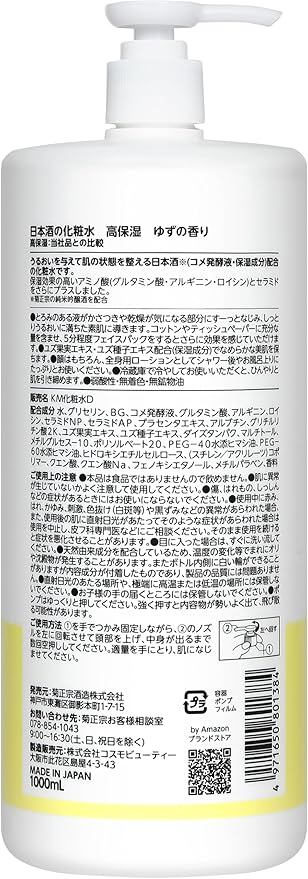 日本酒の化粧水 高保湿 ゆずの香り
高保湿:当社品との比較
うるおいを与えて肌の状態を整える日本酒※(コメ発酵液・保湿成分)配合
の化粧水です。
保湿効果の高いアミノ酸(グルタミン酸・アルギニン・ロイシン)とセラミド
をさらにプラスしました。
※菊正宗の純米吟醸酒を配合
●とろみのある液がかさつきや乾燥が気になる部分にすーっとなじみ、しっと
りうるおいに満ちた素肌に導きます。コットンやティッシュペーパーに充分な
量を含ませ、5分程度フェイスパックをするとさらに効果を感じていただけま
す。●ユズ果実エキス・ユズ種子エキス配合(保湿成分)でなめらかな美肌を保
ちます。●顔はもちろん、全身用ローションとしてシャワー後やお風呂上りに
たっぷりとお使いください。●冷蔵庫で冷やしてお使いいただくと、ひんやりと
肌を引き締めます。●弱酸性・無着色・無鉱物油
販売名 KM化粧水D
配合成分 水、グリセリン、BG、コメ発酵液、グルタミン酸、アルギニン、ロイ
シン、セラミドNP、セラミドAP、プラセンタエキス、アルブチン、グリチルリ
チン酸2K、ユズ果実エキス、ユズ種子エキス、ダイズタンパク、マルチトール、
メチルグルセス-10、ポリソルベート20、PEG-40水添ヒマシ油、PEG-
60水添ヒマシ油、ヒドロキシエチルセルロース、(スチレン/アクリレーツ)コポ
リマー、クエン酸、クエン酸Na、フェノキシエタノール、メチルパラベン、香料
ご使用上の注意 ●本品は食品ではありませんので飲めません。●肌に異常
が生じていないかよく注意して使用してください。●傷、はれもの、しっしん
などの症状があるときにはお使いにならないでください。●使用中に赤み、
はれ、かゆみ、刺激、色抜け(白斑等)や黒ずみなどの異常があらわれた場合、
また、使用後の肌に直射日光があたってそのような症状があらわれた場合は
使用を中止し、皮フ科専門医などにご相談ください。そのまま使用を続ける
と症状が悪化することがあります。●目に入った場合は、すぐに洗い流して
ください。●天然由来成分を配合しているため、温度の変化等でまれにオリ
や沈殿が生じることがあります。またボトル内側に白い輪ができることがあり
ますが内容成分が付着したものであり、製品の品質には問題ありません。
●直射日光のあたる場所や、極端に高温または低温の場所には保管しないで
ください。●お子様の手の届くところには保管しないでください。●ポンプは
ゆっくりと押してください。強く押すと内容物が勢いよく出て、飛び散る
可能性があります。
ご使用方法 ①を手でつかみ固定しながら、②のノズ
ルを左に回転させて頭部を上げ、中身が出るまで
数回空押ししてください。適量を手にとり、肌になじ
ませてください。
② 左へ回す
①
発売元:菊正宗酒造株式会社
神戸市東灘区御影本町1-7-15
お問い合わせ先:菊正宗お客様相談室
078-854-1043
9:00~16:30(土、日、祝日を除く)
製造販売元:株式会社コスモビューティー
大阪市此花区島屋4-3-43
MADE IN JAPAN
1000mL
プラ
容器
ポンプ
フィルム
by Amazon
ブランドストア
4 971650 801384